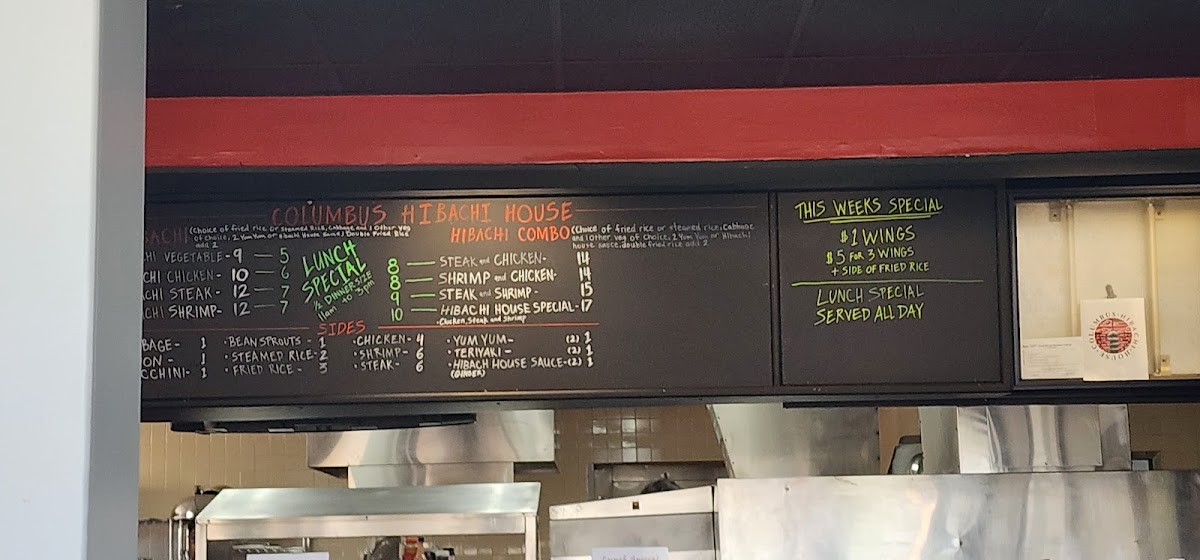 COLUMBUS HIBACHI HOUSE
BACHI (Choice of fried rice or Steamed Rice, Cabbage and 1 Other Veg
of choice, 2 Yum Yum or Hibachi House Sauce) Double Fried Rice
add 2
CHI VEGETABLE - 9 — 5
CHI CHICKEN - 10 — 6
ACHI STEAK - 12 — 7
ACHI SHRIMP - 12 — 7
LUNCH
SPECIAL
½ DINNER SIZE
11am to 3pm
HIBACHI COMBO (Choice of fried rice or steamed rice, Cabbage
and 1 other veg of Choice, 2 Yum Yum or Hibachi
house sauce. double fried rice add 2
8 — STEAK and CHICKEN - 14
8 — SHRIMP and CHICKEN - 14
9 — STEAK and SHRIMP - 15
10 — HIBACHI HOUSE SPECIAL - 17
• Chicken, Steak and Shrimp
SIDES
BAGE - 1
ON - 1
CCHINI - 1
• BEAN SPROUTS - 1
• STEAMED RICE - 2
• FRIED RICE - 3
• CHICKEN - 4
• SHRIMP - 6
• STEAK - 6
• YUM YUM - (2) 1
• TERIYAKI - (2) 1
• HIBACH HOUSE SAUCE - (2) 1
(GINGER)
THIS WEEKS SPECIAL
$1 WINGS
$5 FOR 3 WINGS
+ SIDE OF FRIED RICE
LUNCH SPECIAL
SERVED ALL DAY
COLUMBUS HIBACHI HOUSE